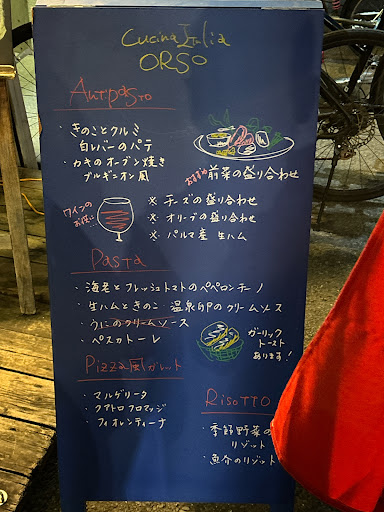 Cucina Italia
ORSO
Antipasto
・きのことクルミ
白レバーのパテ
・カキのオーブン焼き
ブルギニオン風
おすすめ 前菜の盛り合わせ
ワインの
お供に…
※ チーズの盛り合わせ
※ オリーブの盛り合わせ
※ パルマ産 生ハム
Pasta
・海老とフレッシュトマトのペペロンチーノ
・生ハムときのこ 温泉卵のクリームソース
・うにのクリームソース
・ペスカトーレ
ガーリック
トースト
あります!
Pizza風ガレット
・マルゲリータ
・クアトロフロマッジ
・フィオレンティーナ
Risotto
・季節野菜の
リゾット
・魚介のリゾット